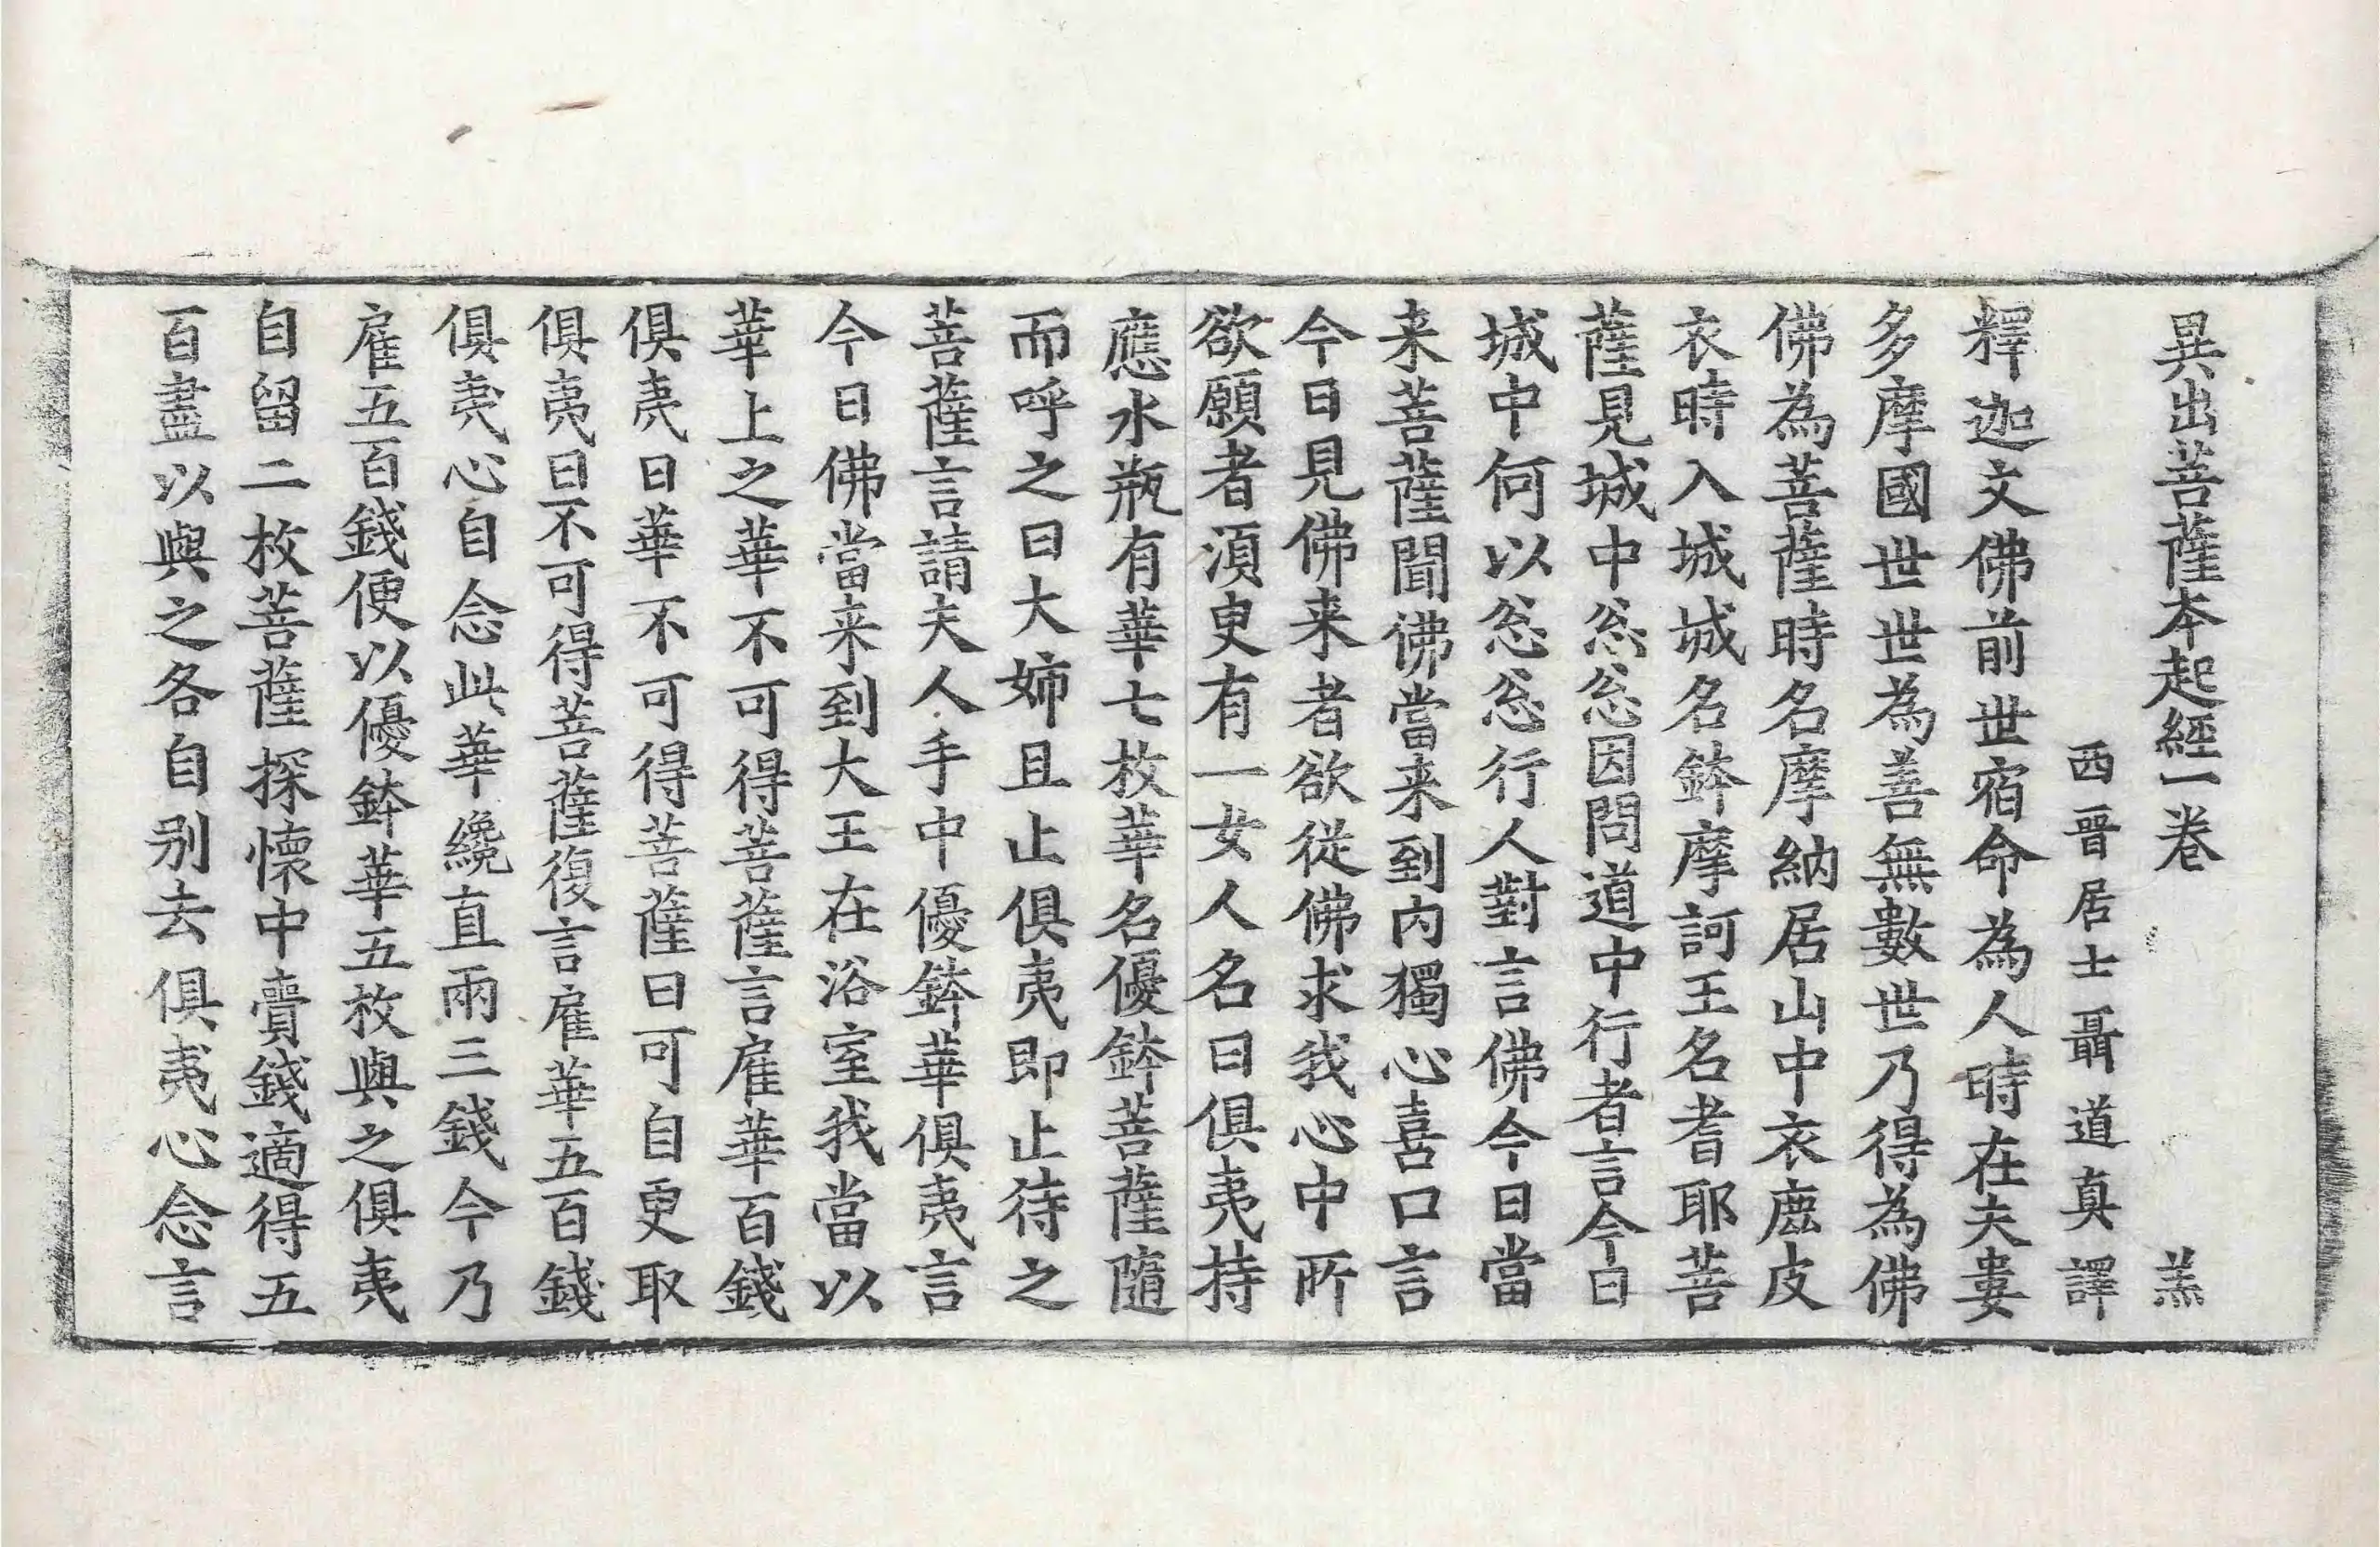 異出菩薩本起經一卷　羔
西晉居士聶道真譯
釋迦文佛前世宿命為人時在夫婁
多摩國世世為善無數世乃得為佛
佛為菩薩時名摩納居山中衣鹿皮
衣時入城城名鉢摩訶王名耆耶菩
薩見城中忩忩因問道中行者言今日
城中何以忩忩行人對言佛今日當
来菩薩聞佛當来到內獨心喜口言
今日見佛来者欲從佛求我心中所
欲願者須臾有一女人名曰俱夷持
應水瓶有華七枚華名優鉢菩薩隨
而呼之曰大姉且止俱夷即止待之
菩薩言請夫人手中優鉢華俱夷言
今日佛當来到大王在浴室我當以
華上之華不可得菩薩言雇華百錢
俱夷曰華不可得菩薩曰可自更取
俱夷曰不可得菩薩復言雇華五百錢
俱夷心自念此華纔直兩三錢今乃
雇五百錢便以優鉢華五枚與之俱夷
自留二枚菩薩探懷中賣錢適得五
百盡以與之各自別去俱夷心念言